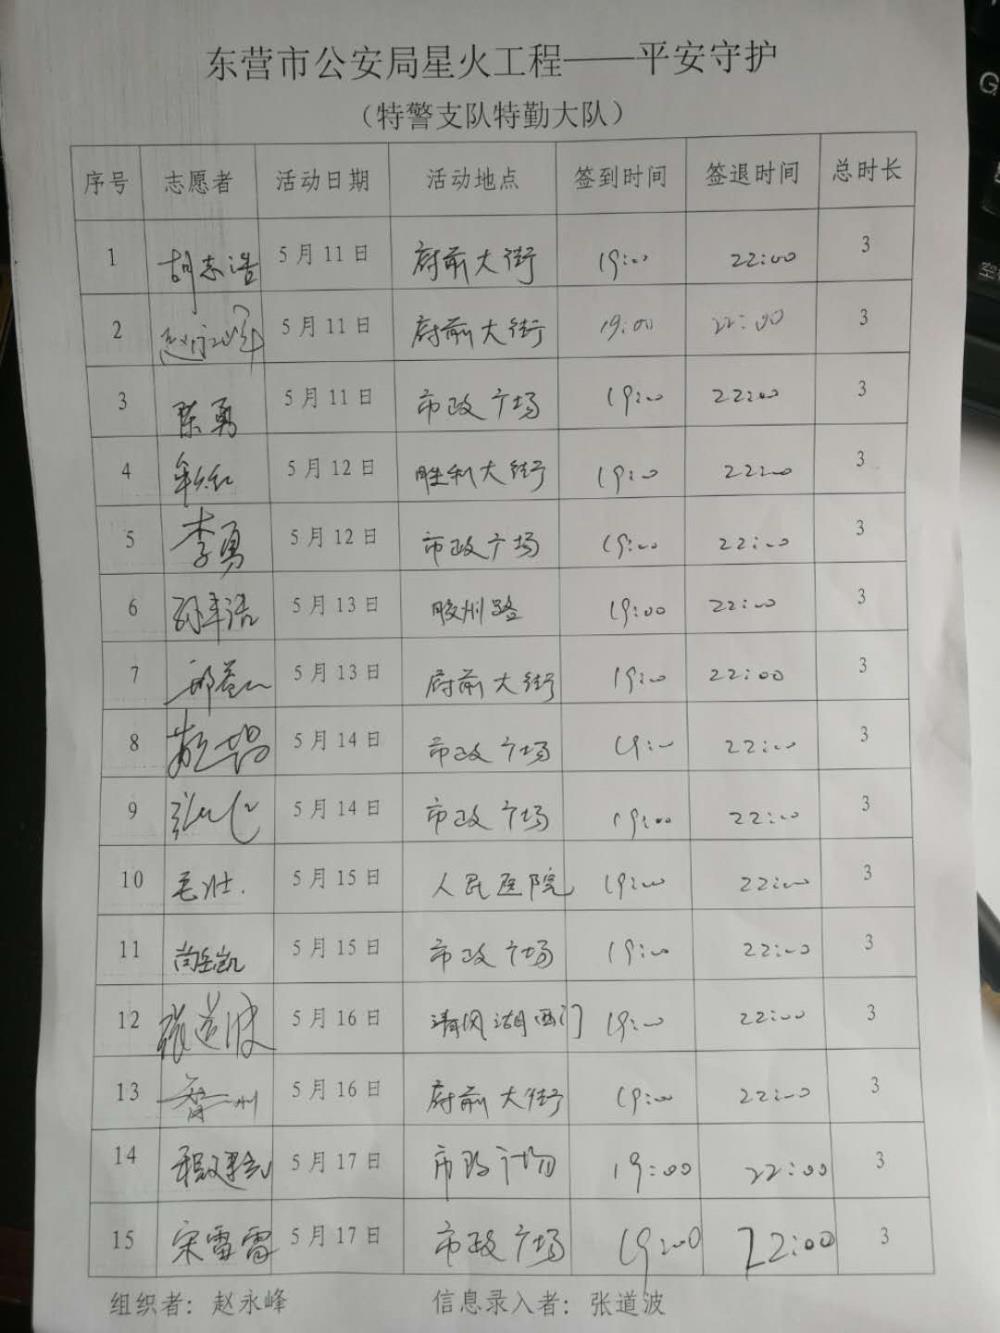 东营市公安局星火工程——平安守护
（特警支队特勤大队）
序号 志愿者 活动日期 活动地点 签到时间 签退时间 总时长
1 胡志浩 5月11日 府前大街 19:00 22:00 3
2 赵永峰 5月11日 府前大街 19:00 22:00 3
3 陈勇 5月11日 市政广场 19:00 22:00 3
4 5月12日 胜利大街 19:00 22:00 3
5 李勇 5月12日 市政广场 19:00 22:00 3
6 5月13日 胶州路 19:00 22:00 3
7 5月13日 府前大街 19:00 22:00 3
8 5月14日 市政广场 19:00 22:00 3
9 5月14日 市政广场 19:00 22:00 3
10 毛壮 5月15日 人民医院 19:00 22:00 3
11 尚岳凯 5月15日 市政广场 19:00 22:00 3
12 张道波 5月16日 清风湖西门 19:00 22:00 3
13 5月16日 府前大街 19:00 22:00 3
14 5月17日 市政广场 19:00 22:00 3
15 宋雷雷 5月17日 市政广场 19:00 22:00 3
组织者：赵永峰 信息录入者：张道波